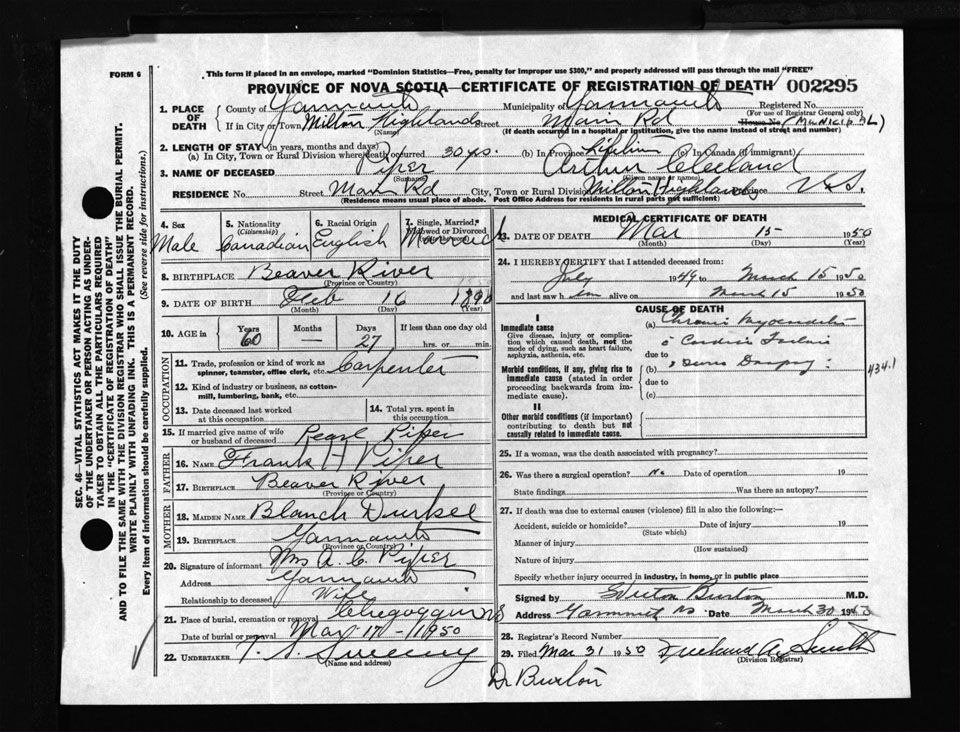 FORM 6
This form if placed in an envelope, marked "Dominion Statistics—Free, penalty for improper use $300," and properly addressed will pass through the mail "FREE"
PROVINCE OF NOVA SCOTIA—CERTIFICATE OF REGISTRATION OF DEATH 002295
1. PLACE OF DEATH County of Yarmouth Municipality of Yarmouth Registered No.
(For use of Registrar General only)
If in City or Town Milton Highlands street Main Rd House No. (MUNICIPAL)
(Name) (If death occurred in a hospital or institution, give the name instead of street and number)
2. LENGTH OF STAY (in years, months and days)
(a) In City, Town or Rural Division where death occurred 30 yrs. (b) In Province Lifetime (c) In Canada (if immigrant)
3. NAME OF DECEASED Piper Arthur Cleeland
(Surname) (Given name or names)
RESIDENCE No. Street Main Rd City, Town or Rural Division Milton Highlands Province N.S.
(Residence means usual place of abode. Post Office Address for residents in rural parts not sufficient)
4. Sex 5. Nationality (Citizenship) 6. Racial Origin 7. Single, Married, Widowed or Divorced
Male Canadian English Married
8. BIRTHPLACE Beaver River
(Province or Country)
9. DATE OF BIRTH Feb 16 1890
(Month) (Day) (Year)
10. AGE in Years Months Days If less than one day old
60 — 27 hrs. or min.
OCCUPATION
11. Trade, profession or kind of work as spinner, teamster, office clerk, etc. Carpenter
12. Kind of industry or business, as cotton-mill, lumbering, bank, etc.
13. Date deceased last worked at this occupation 14. Total yrs. spent in this occupation
15. If married give name of wife or husband of deceased Pearl Piper
FATHER
16. NAME Frank H Piper
17. BIRTHPLACE Beaver River
(Province or Country)
MOTHER
18. MAIDEN NAME Blanch Durkee
19. BIRTHPLACE Yarmouth
(Province or Country)
20. Signature of informant Mrs A. C. Piper
Address Yarmouth
Relationship to deceased Wife
21. Place of burial, cremation or removal Chegoggin NS
Date of burial or removal Mar 17 - 1950
22. UNDERTAKER T. S. Sweeny
(Name and address)
MEDICAL CERTIFICATE OF DEATH
23. DATE OF DEATH Mar 15 1950
(Month) (Day) (Year)
24. I HEREBY CERTIFY that I attended deceased from:
July 1949 to March 15 1950
and last saw him alive on March 15 1950
CAUSE OF DEATH
I
Immediate cause
Give disease, injury or complication which caused death, not the mode of dying, such as heart failure, asphyxia, asthenia, etc.
(a) Chronic Myocarditis
Cardiac Failure
due to
Morbid conditions, if any, giving rise to immediate cause (stated in order proceeding backwards from immediate cause).
(b)
due to
(c)
434.1
II
Other morbid conditions (if important) contributing to death but not causally related to immediate cause.
25. If a woman, was the death associated with pregnancy?
26. Was there a surgical operation? No Date of operation 19
State findings Was there an autopsy?
27. If death was due to external causes (violence) fill in also the following:—
Accident, suicide or homicide? Date of injury 19
(State which)
Manner of injury
(How sustained)
Nature of injury
Specify whether injury occurred in industry, in home, or in public place
Signed by Burton M.D.
Address Yarmouth NS Date March 30 19
28. Registrar's Record Number
29. Filed Mar 31 1950 Freeland A. Smith
(Division Registrar)
Dr Burton
SEC. 46—VITAL STATISTICS ACT MAKES IT THE DUTY
OF THE UNDERTAKER OR PERSON ACTING AS UNDER-
TAKER TO OBTAIN ALL THE PARTICULARS REQUIRED
IN THE "CERTIFICATE OF REGISTRATION OF DEATH"
AND TO FILE THE SAME WITH THE DIVISION REGISTRAR WHO SHALL ISSUE THE BURIAL PERMIT.
WRITE PLAINLY WITH UNFADING INK. THIS IS A PERMANENT RECORD.
Every item of information should be carefully supplied. (See reverse side for instructions.)